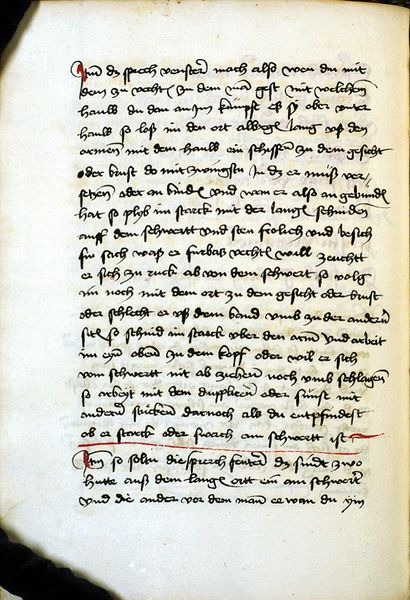 Itm dz sprech venster mach also wen du mit
dem zu vechtl zu dem man gest mit welchem
hauw du dan an jm kumpst es sy ober vnter
hauw so loß im den ort albegl lang vß den
armen mit dem hauw ein schiessen zu dem gesicht
oder brust do mit zwingstu jn dz er muß ver-
setzen oder an bindl vnd wan er also an gebundl
hat so plyb im starck mit der langl schniden
auff dem schwertt vnd sten frolich vnd besich
sin sach waß er furbas vechtl will zeuchtt
er sich zu ruck ab von dem schwert so volg
im noch mit dem ort zu dem gesicht oder brust
oder schlecht er vß dem band vmb zu der andern
sitl so schnid im starck vber den arm vnd arbeit
im eyn oben zu dem kopff oder wil er sich
vom schwertt nit ab ziehen noch vmb schlagen
so arbeit mit dem duppliern oder sunst mit
andern stucken darnoch als du entpfindest
ob er starck oder swach am schwertt ist
Itm so soltu die sprech fenster dz sindt zwo
hutte auß dem langl ortt ein am schwert
vnd die ander vor dem man er wan du jm